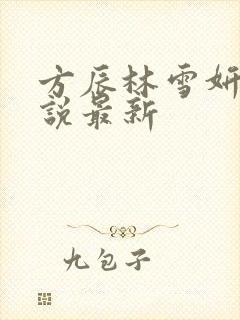 方辰林雪妍
説最新
九包子